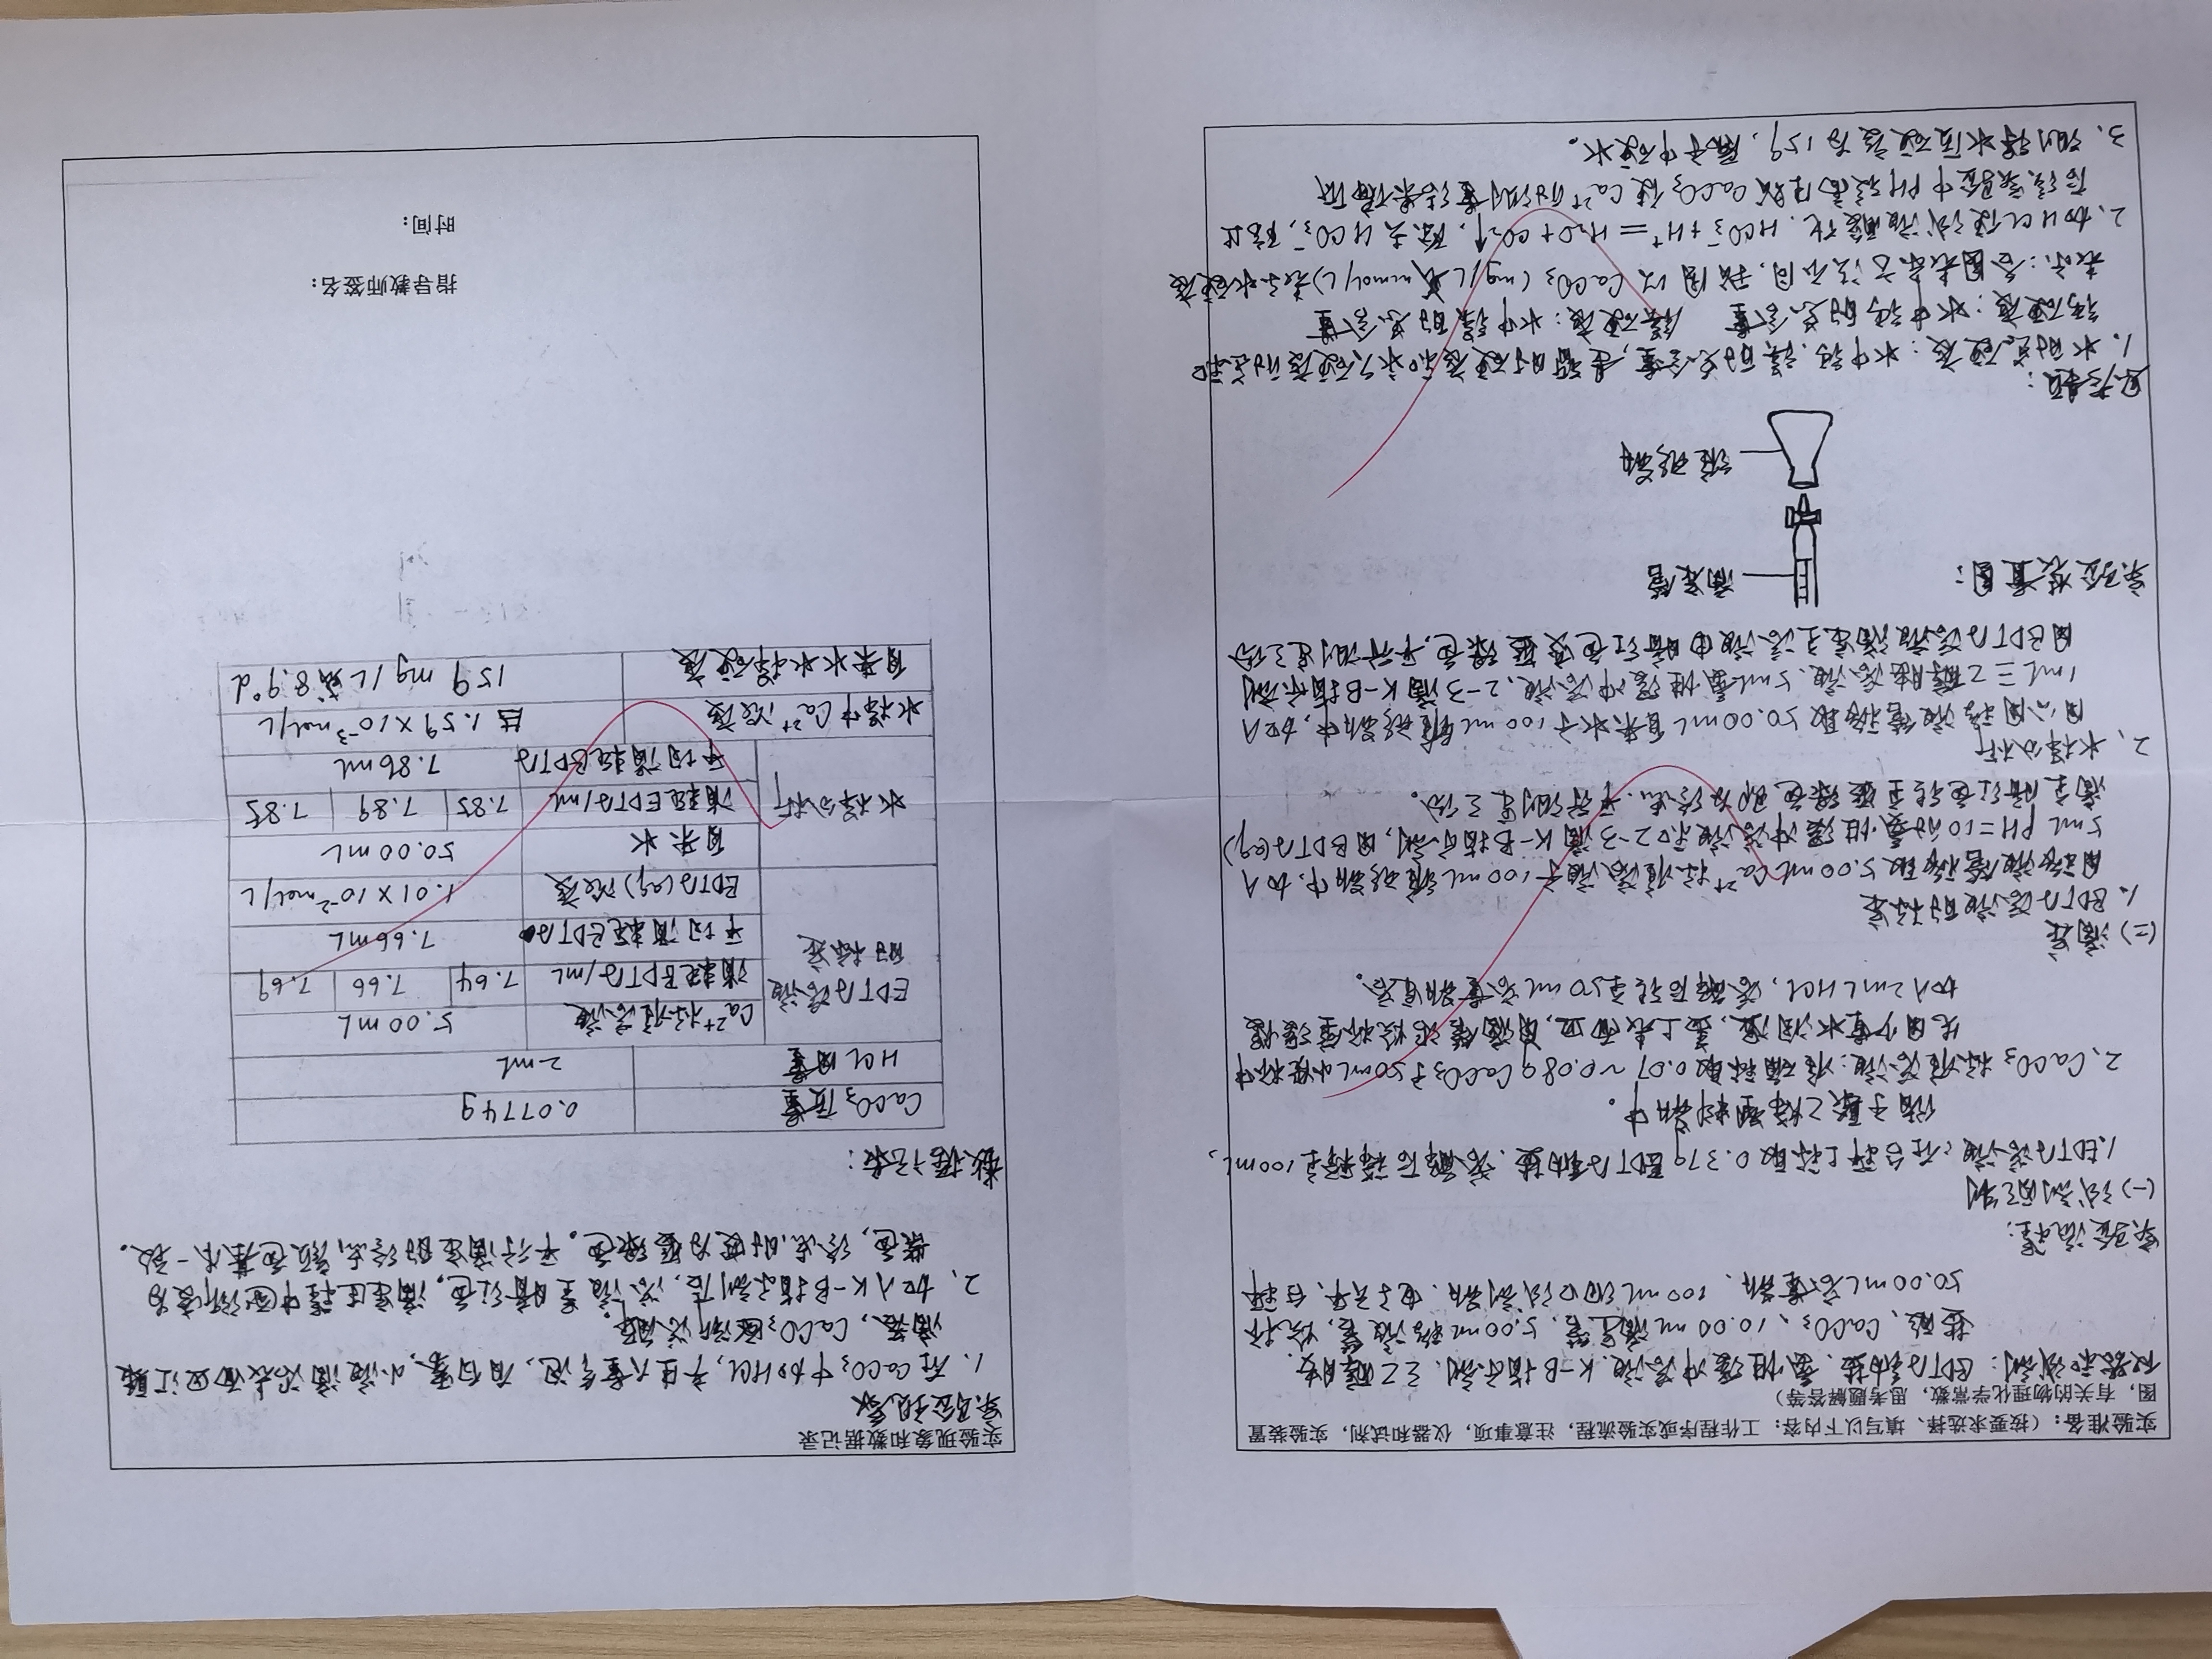 实验准备：（按要求选择、填写以下内容：工作程序或实验流程，注意事项，仪器和试剂，实验装置
图，有关的物理化学常数，思考题解答等）
仪器和试剂：EDTA钠盐、氨性缓冲溶液、K-B指示剂、三乙醇胺、
盐酸、CaCO₃、10.00mL滴定管、5.00mL移液管、烧杯
50.00mL容量瓶、100mL细口试剂瓶、电子天平、台秤
实验流程：
(一)试剂配制
1.EDTA溶液：在台秤上称取0.37g EDTA钠盐、溶解后稀释至100mL,
储于聚乙烯塑料瓶中。
2、CaCO₃标准溶液：准确称取0.07~0.08gCaCO₃于50mL小烧杯中
先用少量水润湿，盖上表面皿，用滴管沿烧杯壁缓慢
加入2mLHCl，溶解后转至50mL容量瓶定容。
(二)滴定
1.EDTA溶液的标定
用移液管移取5.00mLCa²⁺标准溶液于100mL锥形瓶中，加入
5mL PH=10的氨性缓冲溶液和2-3滴K-B指示剂，用EDTA(aq)
滴至暗红色转至蓝绿色即为终点、平行测定三份。
2、水样分析
用公用移液管移取50.00mL自来水于100mL锥形瓶中，加入
1mL三乙醇胺溶液、5mL氨性缓冲溶液、2-3滴K-B指示剂
用EDTA溶液滴定至溶液由暗红色变蓝绿色，平行测定三份
实验装置图：
滴定管
锥形瓶
思考题：
1、水的总硬度：水中钙、镁的总含量，是暂时硬度和永久硬度的总和
钙硬度：水中钙的总含量 镁硬度：水中镁的总含量
表示：各国表示方法不同，我国以CaCO₃(mg/L或mmol/L)表示水硬度
2、加HCl使试液酸化、HCO₃⁻+H⁺=H₂O+CO₂↑，除去HCO₃⁻，防止
后续实验中PH较高时成CaCO₃使Ca²⁺的测量结果偏低
3、测得水质硬度为159，属于中硬水。
实验现象和数据记录
实验现象
1、在CaCO₃中加HCl，产生大量气泡，有白雾、小液滴沿表面皿汇聚
滴落，CaCO₃逐渐溶解。
2、加入K-B指示剂后，溶液呈暗红色，滴定过程中逐渐变为
紫色，终点时变为蓝绿色。平行滴定时终点颜色基本一致。
数据记录：
CaCO₃质量 0.0774g
HCl用量 2mL
EDTA溶液的标定 Ca²⁺标准溶液 5.00mL
消耗EDTA/mL 7.64 7.66 7.69
平均消耗EDTA 7.66mL
EDTA(aq)浓度 1.01×10⁻²mol/L
水样分析 自来水 50.00mL
消耗EDTA/mL 7.85 7.89 7.85
平均消耗EDTA 7.86mL
水样中Ca²⁺浓度 1.59×10⁻³mol/L
自来水水样硬度 159mg/L或8.9°d
指导教师签名：
时间：